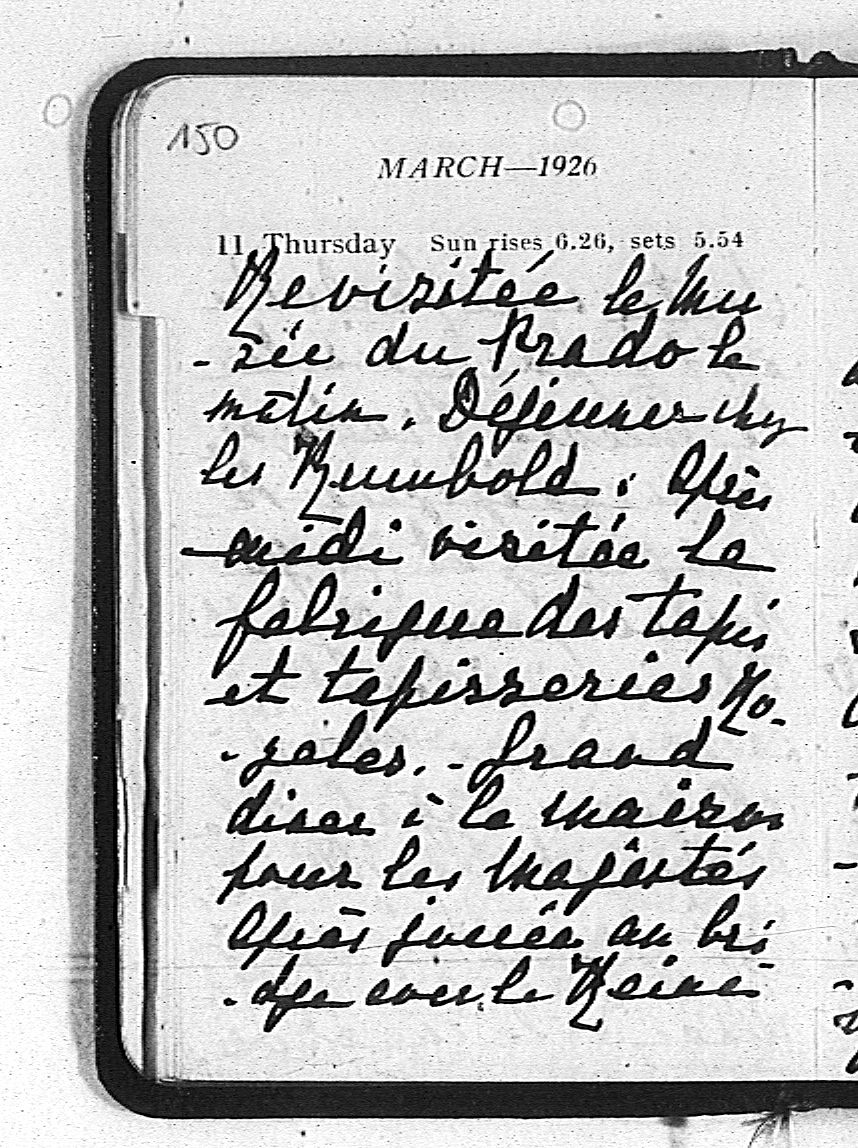 150
MARCH—1926
11 Thursday Sun rises 6.26, sets 5.54
Revisitée le Mu
- sée du Prado le
matin. Déjeuner chez
les Rumbold. Après
- midi visitée la
fabrique des tapis
et tapisseries Ro-
- yales. - Grand
diner à la maison
pour les Majestés
Après jouée au bri
- dge avec la Reine